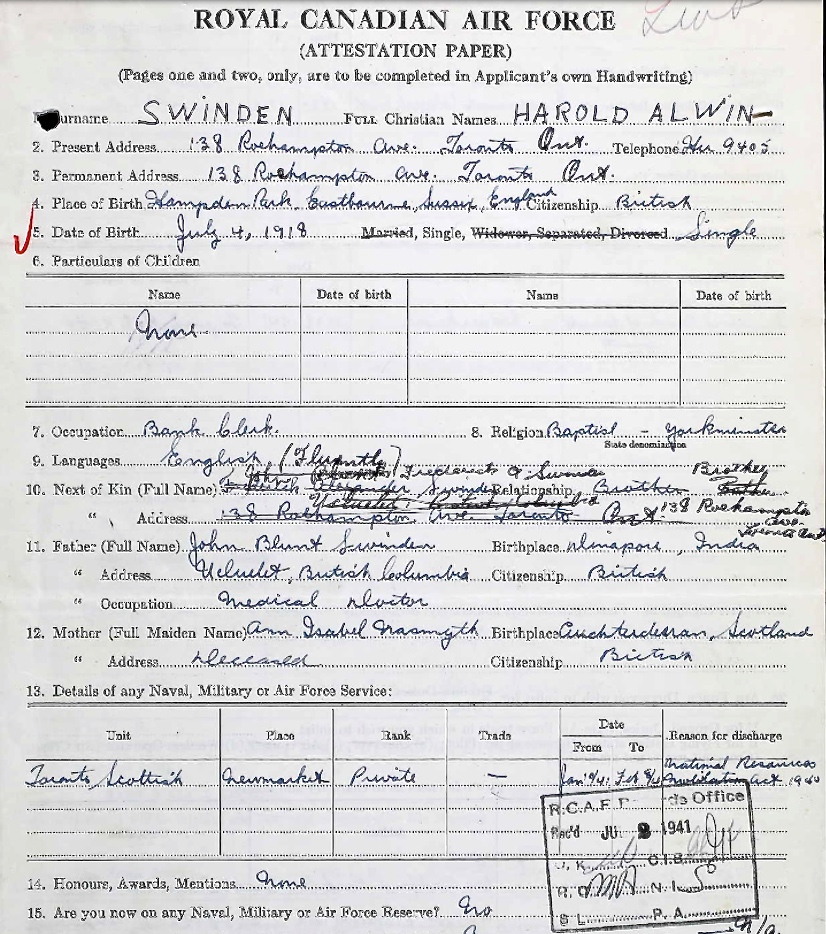 ROYAL CANADIAN AIR FORCE
(ATTESTATION PAPER)
(Pages one and two, only, are to be completed in Applicant's own Handwriting)
Surname SWINDEN Full Christian Names HAROLD ALWIN
2. Present Address 138 Roehampton Ave. Toronto Ont. Telephone Hu 9405
3. Permanent Address 138 Roehampton Ave. Toronto Ont.
4. Place of Birth Hampden Park, Eastbourne, Sussex, England Citizenship British
5. Date of Birth July 4, 1918 Married, Single, Widower, Separated, Divorced Single
6. Particulars of Children
Name Date of birth Name Date of birth
None
7. Occupation Bank Clerk. 8. Religion Baptist - Yorkminster
State denomination
9. Languages English (Fluently)
10. Next of Kin (Full Name) Frederick Alexander Swinden Relationship Brother Brother
" Address 138 Roehampton Ave. Toronto Ont. 138 Roehampton Ave. Toronto Ont
11. Father (Full Name) John Blunt Swinden Birthplace Dinapore, India
" Address Ucluelet, British Columbia Citizenship British
" Occupation Medical Doctor
12. Mother (Full Maiden Name) Ann Isabel Nasmyth Birthplace Auchterderran, Scotland
" Address Deceased Citizenship British
13. Details of any Naval, Military or Air Force Service:
Unit Place Rank Trade Date Reason for discharge
From To
Toronto Scottish Newmarket Private — National Resources
Mobilization Act 1940
R.C.A.F. Office
Rec'd JU 2 1941
C.I.B.
R.O. N.I.
S L P. A.
14. Honours, Awards, Mentions None
15. Are you now on any Naval, Military or Air Force Reserve? No